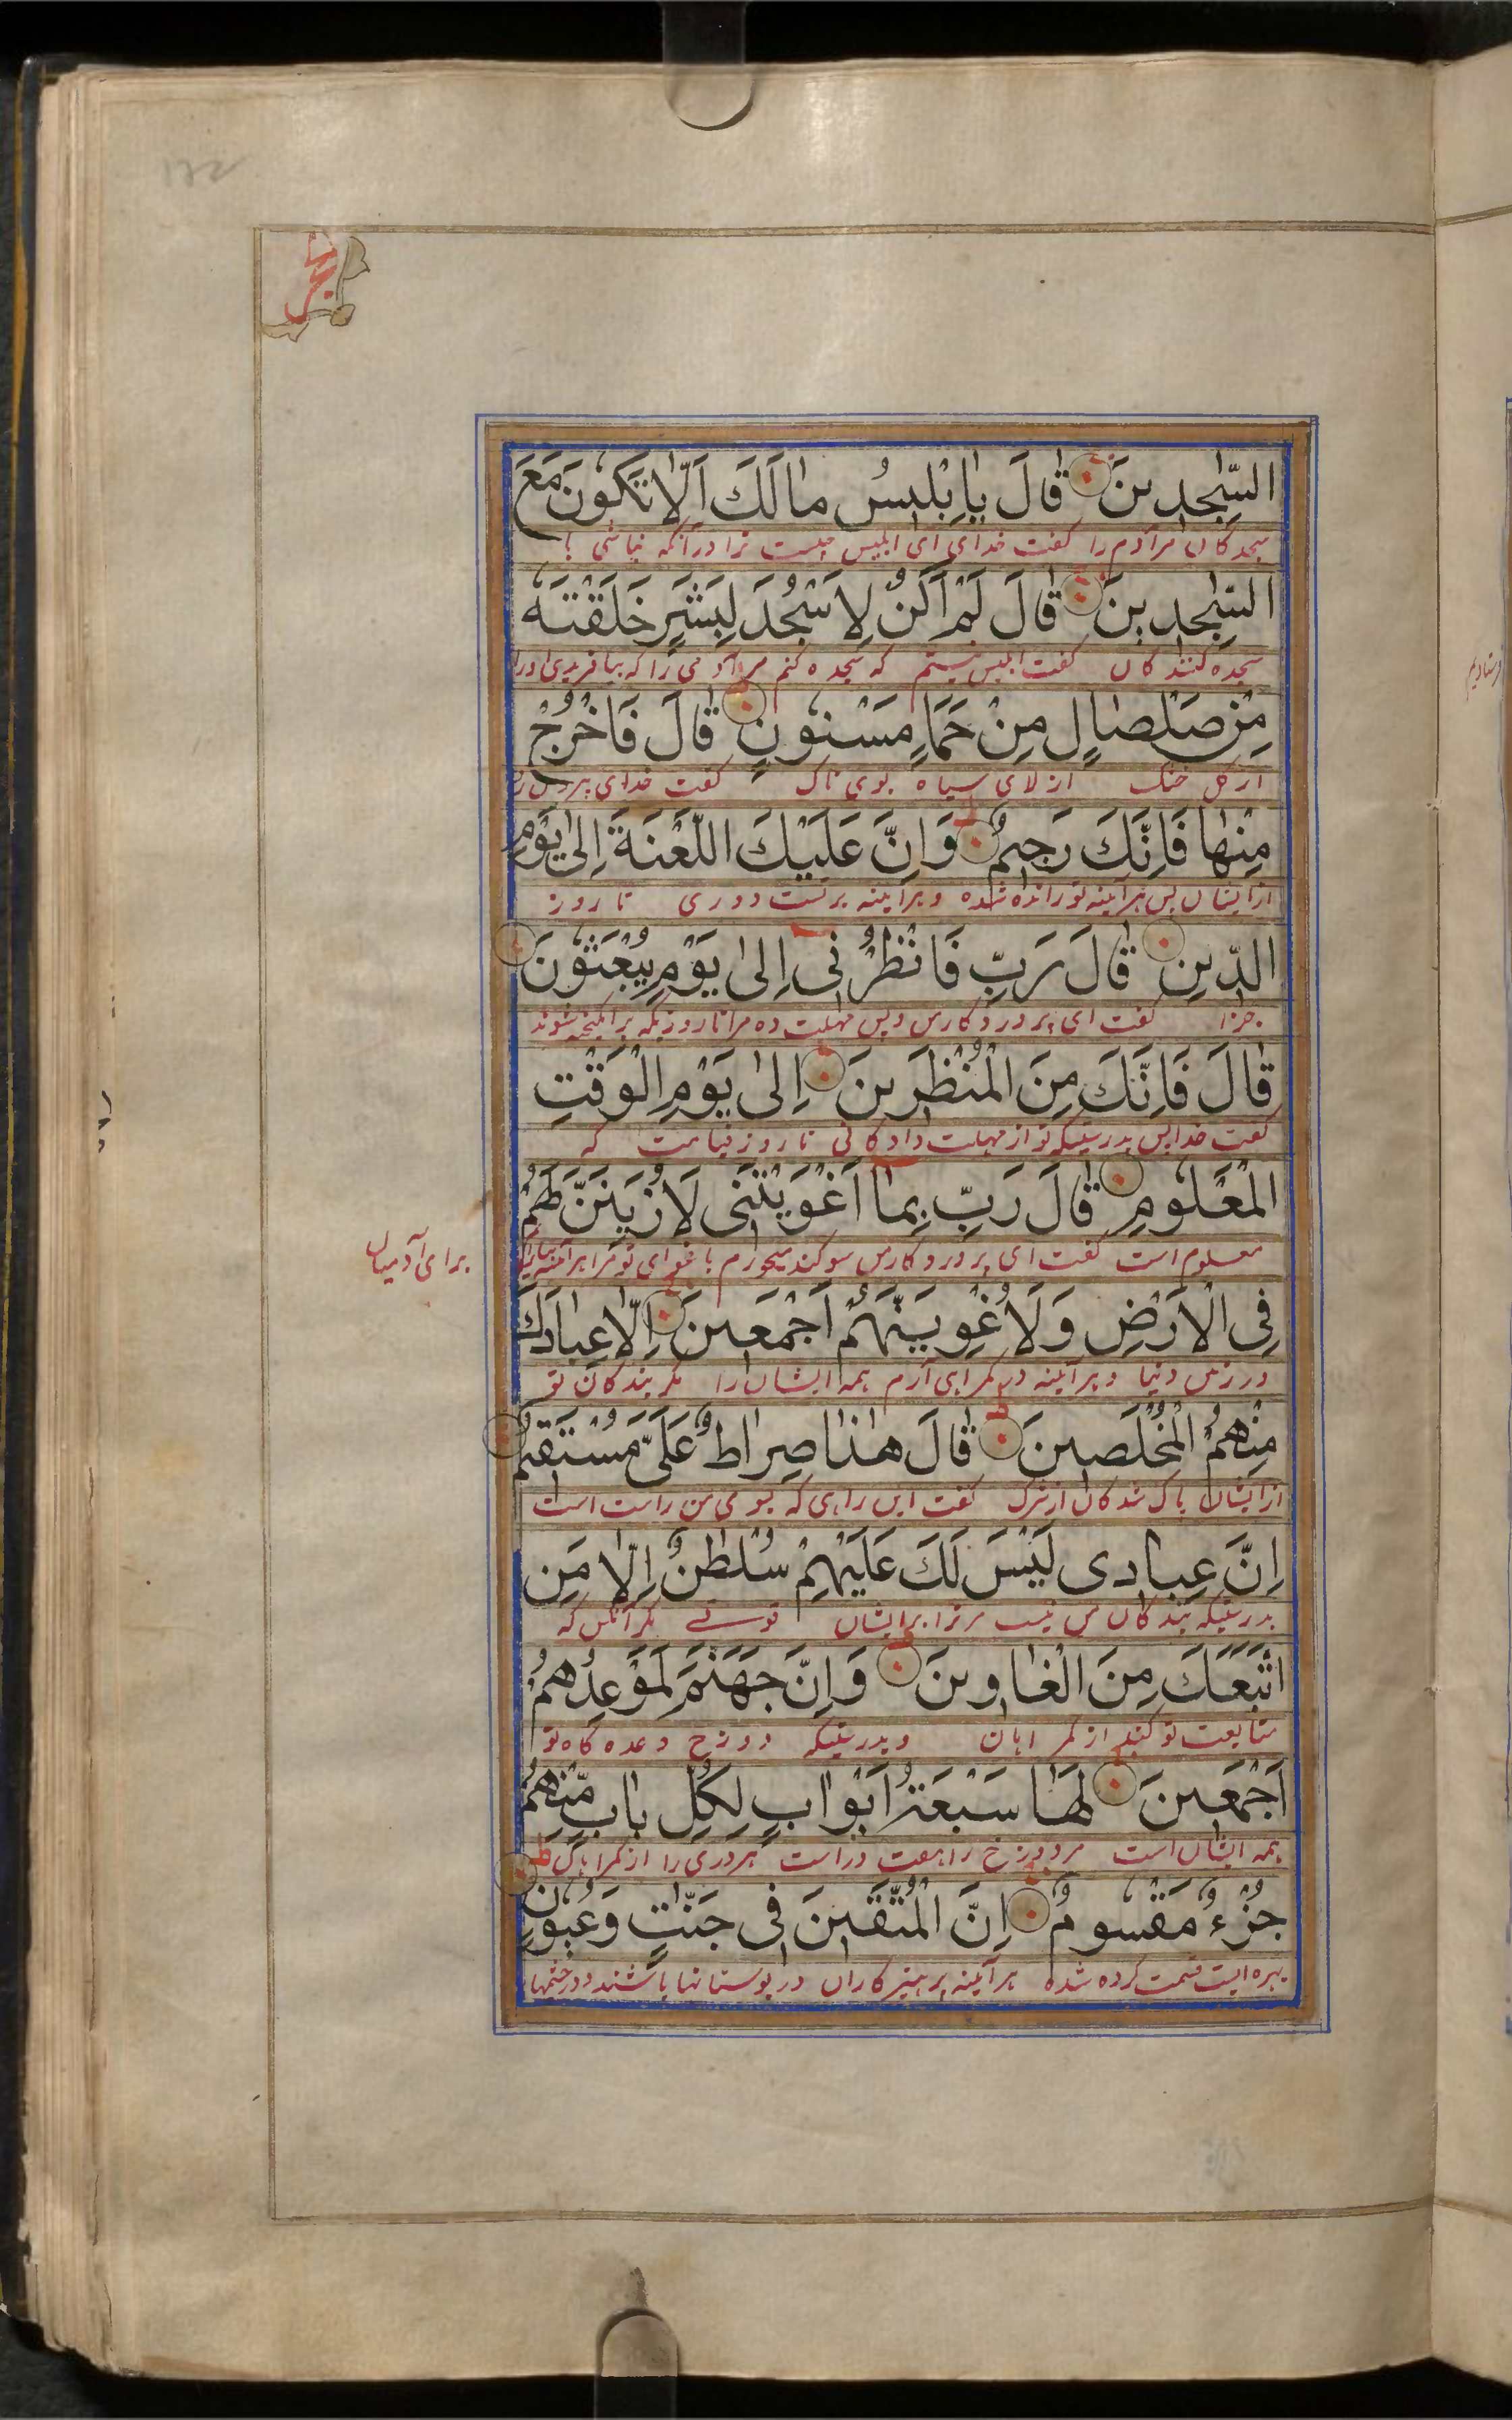 حجر
السّٰجِدينَ قٰالَ يٰا اِبْليسُ مٰا لَكَ اَلّٰا تَكُونَ مَعَ
سجدکان مر آدم را گفت خدای ای ابلیس چیست ترا در آنکه نباشی با
السّٰجِدينَ قٰالَ لَمْ اَكُنْ لِاَسْجُدَ لِبَشَرٍ خَلَقْتَهُ
سجده کنندکان گفت ابلیس نیستم که سجده کنم مر آدمی را که بیافریدی او را
مِنْ صَلْصٰالٍ مِنْ حَمَاٍ مَسْنُونٍ قٰالَ فَاخْرُجْ
از کل خشک از لای سیاه بوی ناک گفت خدای بیرون رو
مِنْهٰا فَاِنَّكَ رَجيمٌ وَاِنَّ عَلَيْكَ اللَّعْنَةَ اِلىٰ يَوْمِ
از ایشان پس هر آینه تو رانده شده و هر آینه بر تست دوری تا روز
الدّينِ قٰالَ رَبِّ فَانْظُرْنى اِلىٰ يَوْمِ يُبْعَثُونَ
جزا گفت ای پروردکار من پس مهلت ده مرا تا روزیکه برانکیخته شوند
قٰالَ فَاِنَّكَ مِنَ الْمُنْظَرينَ اِلىٰ يَوْمِ الْوَقْتِ
گفت خدا پس بدرستیکه تو از مهلت دادکانی تا روز قیامت که
الْمَعْلُومِ قٰالَ رَبِّ بِمٰا اَغْوَيْتَنى لَاُزَيِّنَنَّ لَهُمْ
معلوم است گفت ای پروردکار من سوکند میخورم باغوای تو مرا هر آینه بیارایم
برای آدمیان
فِى الْاَرْضِ وَلَاُغْوِيَنَّهُمْ اَجْمَعينَ اِلّٰا عِبٰادَكَ
در زمین دنیا و هر آینه در کمراهی آرم همه ایشان را مکر بندکان تو
مِنْهُمُ الْمُخْلَصينَ قٰالَ هٰذٰا صِرٰاطٌ عَلَىَّ مُسْتَقيمٌ
از ایشان پاک شدکان از شرک گفت این راهی که بسوی من راست است
اِنَّ عِبٰادى لَيْسَ لَكَ عَلَيْهِمْ سُلْطٰنٌ اِلّٰا مَنِ
بدرستیکه بندکان من نیست مر ترا بر ایشان قوستے مکر آنکس که
اتَّبَعَكَ مِنَ الْغٰاوينَ وَاِنَّ جَهَنَّمَ لَمَوْعِدُهُمْ
متابعت تو کند از کمراهان و بدرستیکه دوزخ وعده کاه تو
اَجْمَعينَ لَهٰا سَبْعَةُ اَبْوٰابٍ لِكُلِّ بٰابٍ مِّنْهُمْ
همه ایشان است مر دوزخ را هفت در است هر دری را از کمراهان
جُزْءٌ مَقْسُومٌ اِنَّ الْمُتَّقينَ فى جَنّٰتٍ وَعُيُونٍ
بهره ایست قسمت کرده شده هر آینه پرهیزکاران در بوستانها باشند و در چشمها